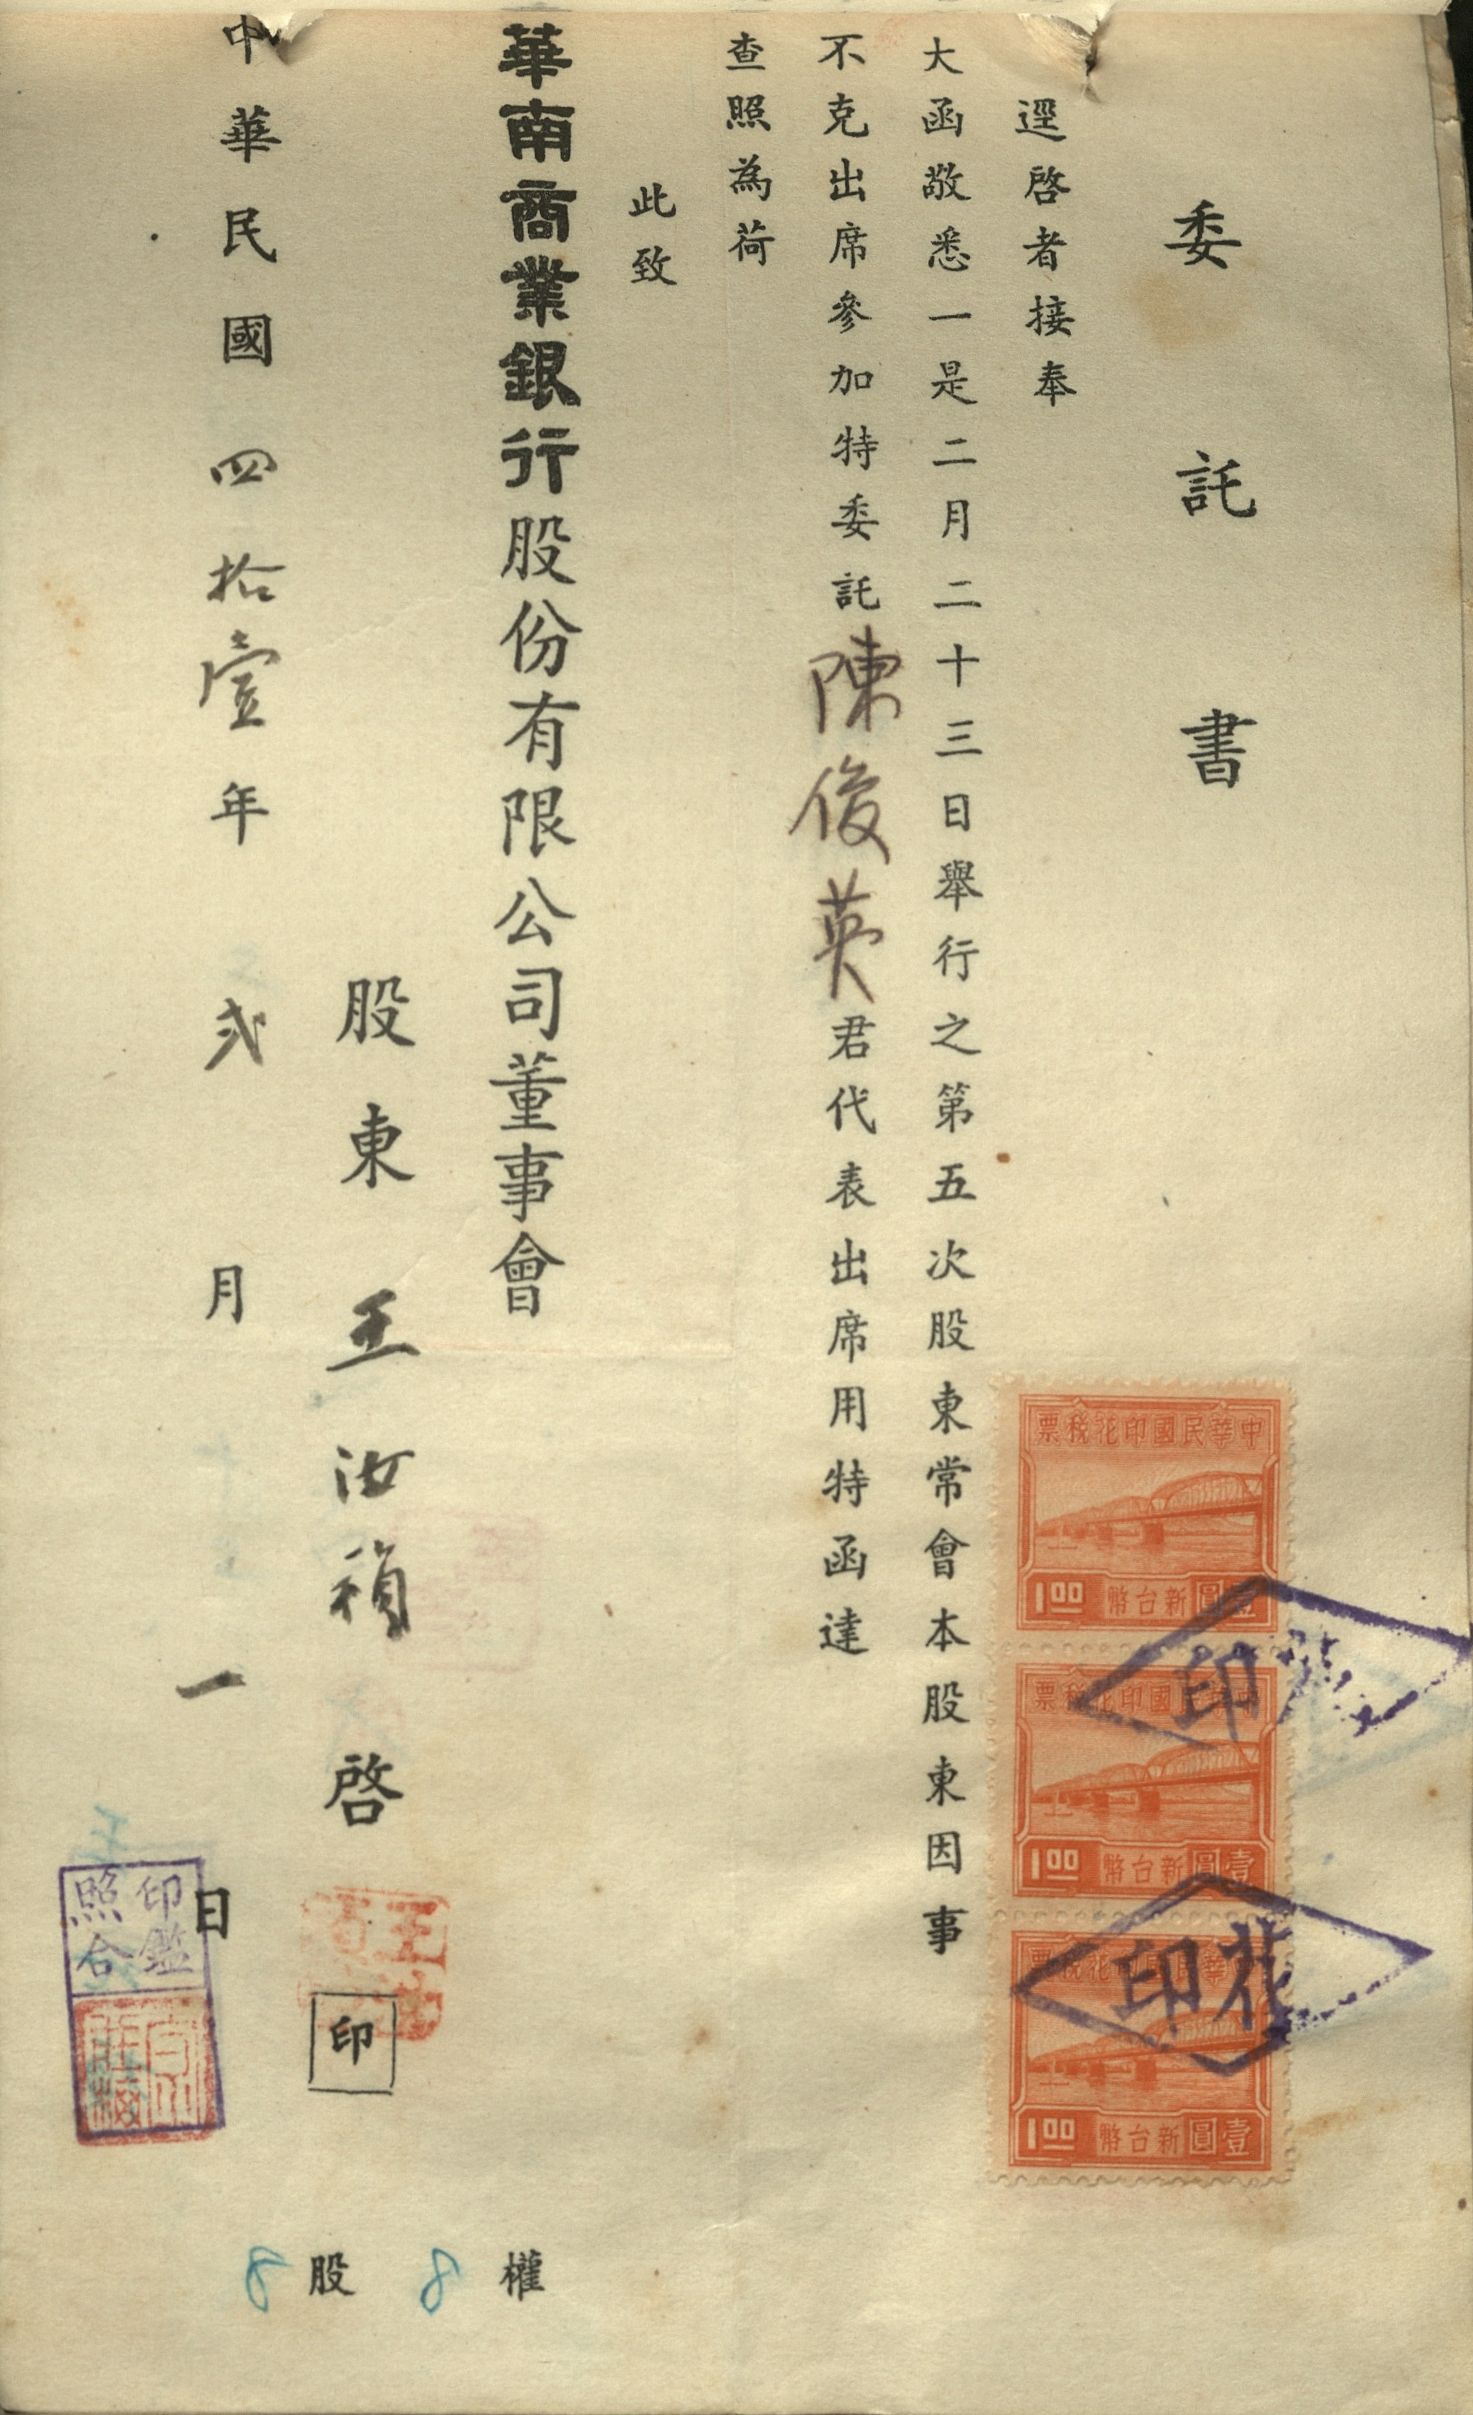 委託書
逕啓者接奉
大函敬悉一是二月二十三日舉行之第五次股東常會本股東因事
不克出席參加特委託陳俊英君代表出席用特函達
查照為荷
此致
華南商業銀行股份有限公司董事會
股東 王汝禎 啓 印
中華民國四拾壹年 弍 月 一 日
8 股 8 權
中華民國印花稅票
壹圓 新台幣 1.00
中華民國印花稅票
壹圓 新台幣 1.00
中華民國印花稅票
壹圓 新台幣 1.00
花印
花印
印鑑
照合